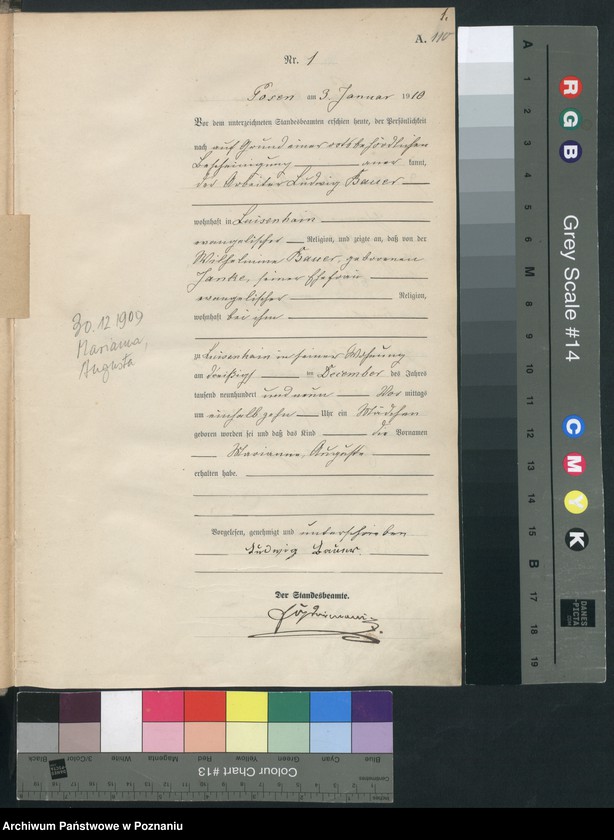 1.
A. 110
Nr. 1
Posen am 3. Januar 1910
Vor dem unterzeichneten Standesbeamten erschien heute, der Persönlichkeit
nach auf Grund einer ortsbehördlichen
Bescheinigung aner kannt,
der Arbeiter Ludwig Bauer
wohnhaft in Luisenhain
evangelischer Religion, und zeigte an, daß von der
Wilhelmine Bauer, geborenen
Janke, seiner Ehefrau
evangelischer Religion,
wohnhaft bei ihm
zu Luisenhain in seiner Wohnung
am dreißigst en December des Jahres
tausend neunhundert und neun Vor mittags
um einhalb zehn Uhr ein Mädchen
geboren worden sei und daß das Kind die Vornamen
Marianne, Auguste
erhalten habe.
30.12 1909
Marianna,
Augusta
Vorgelesen, genehmigt und unterschrieben
Ludwig Bauer
Der Standesbeamte.
A 1 2 3 4 5 6 M 8 9 10 11 12 13 14 15 B 17 18 19
R G B
Grey Scale #14
C M Y K
DANES
PICTA
.COM
Blue Cyan Green Yellow Red Magenta White 3/Color Black
Colour Chart #13
Centimetres
Inches
Archiwum Państwowe w Poznaniu